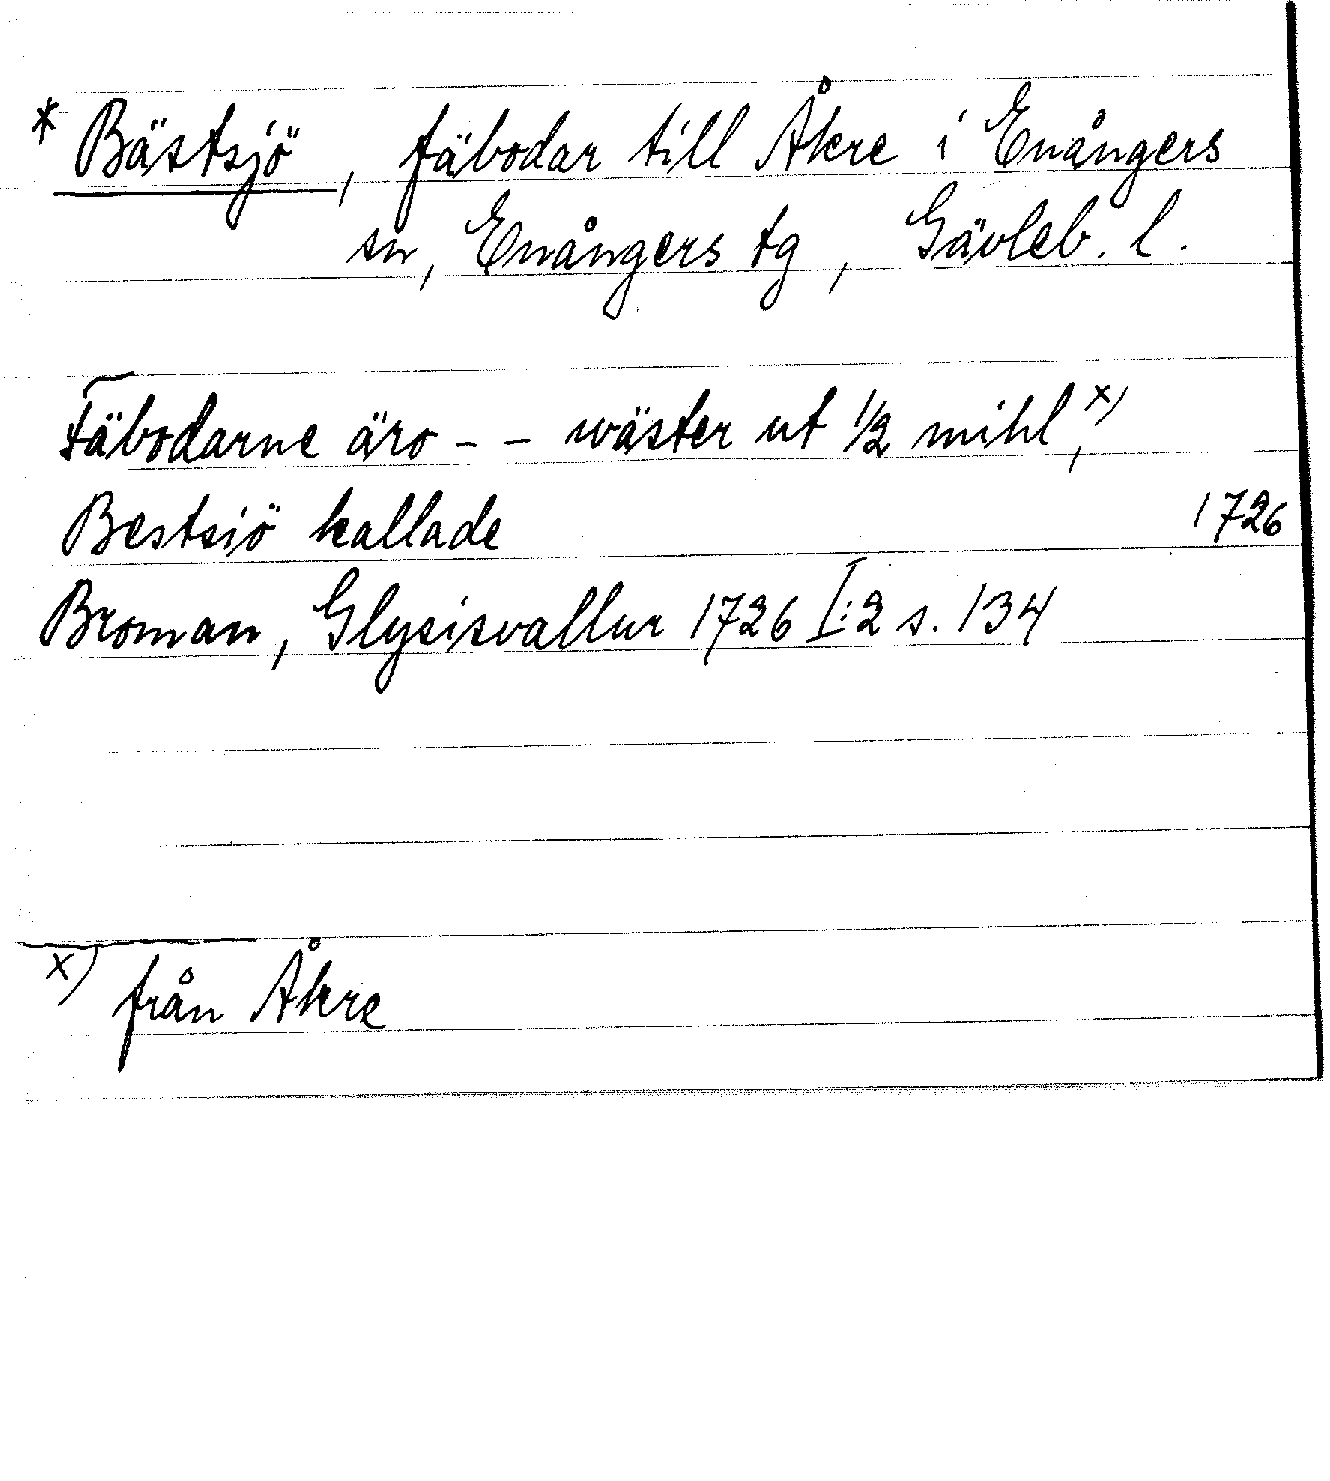 * Bästsjö, fäbodar till Åkre i Enångers
sn, Enångers tg, Gävleb. l.
Fäbodarne äro - - wäster ut 1/2 mihl,x)
Bestsiö kallade 1726
Broman, Glysisvallur 1726 I:2 s. 134
x) från Åkre